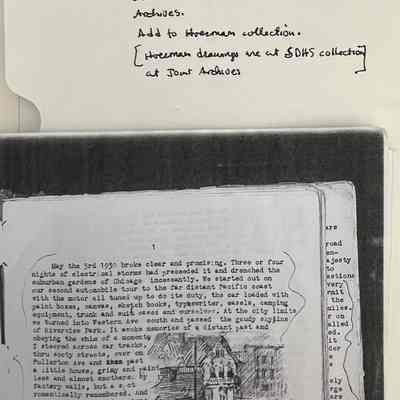 Archives.
Add to Hoerman collection.
[Hoerman drawings are at SDHS collection]
at Joint Archives
1
May the 3rd 1930 broke clear and promising. Three or four
nights of electrical storms had preceeded it and drenched the
suburban gardens of Chicago incessantly. We started out on
our second automobile tour to the far distant Pacific coast
with the motor all tuned up to do its duty, the car loaded with
paint boxes, canvas, sketch books, typewriter, easels, camping
equipment, trunk and suit cases and ourselves. At the city limits
we turned into Western Ave south and passed the gaudy
of Riverview Park. It awoke memories of a distant past and
obeying the whim of a moment
I steered across car tracks,
thru sooty streets, over on
Fullerton Ave and past
a little house, grimy and paint
less and almost smothered by
factory walls, but a spot
romantically remembered. And
ars
road
en-
ajesty
to
estions
very
mit
the
miles.
r on
alled
ed.
it
der
e
s
ly
rge
ars